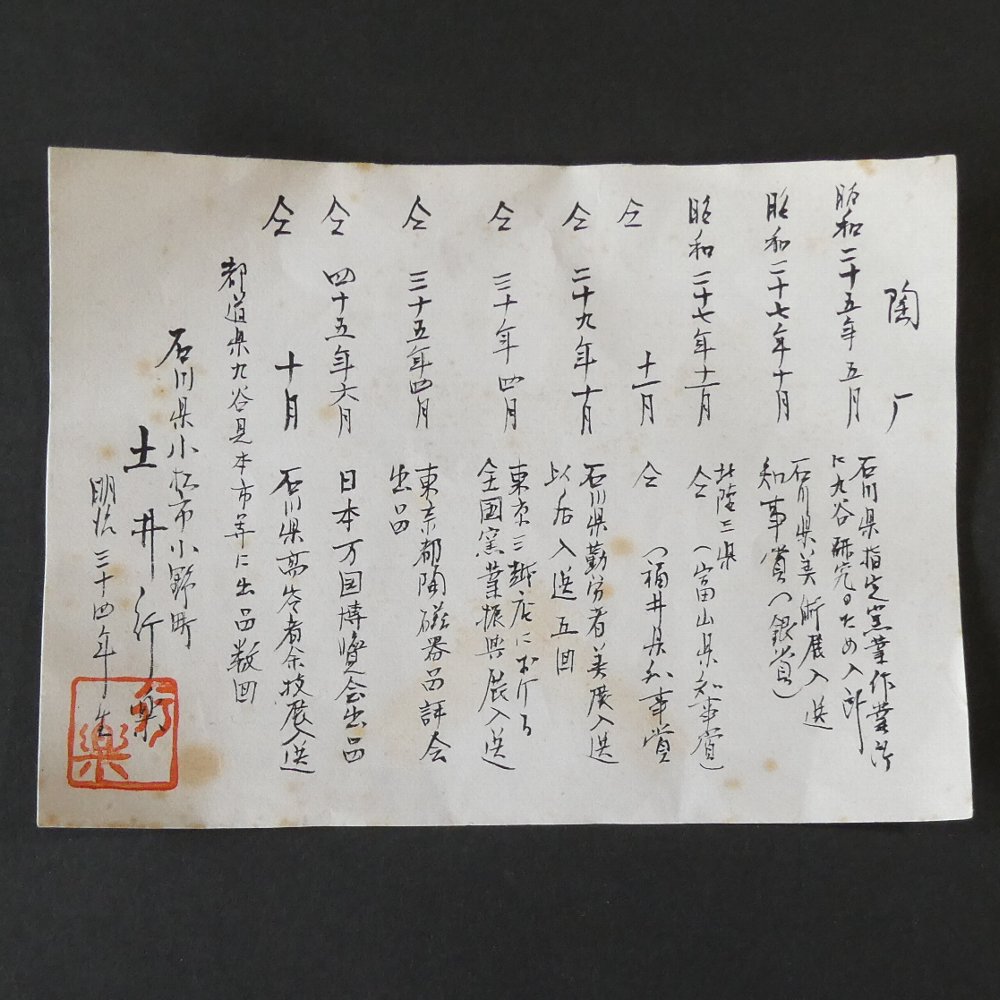 陶 厂
昭和二十五年 五月 石川県指定窯業作業所
に九谷研究のため入所
昭和二十七年十月 石川県美術展入送
知事賞(銀賞)
昭和二十七年十一月 北陸三県
仝(富山県知事賞)
仝 十一月 仝(福井県知事賞)
仝 二十九年十月 石川県勤労者美展入送
以后入送五回
仝 三十年四月 東京三越店に於ける
全国窯業振興展入送
仝 三十五年四月 東京都陶磁器品評会
出品
仝 四十五年六月 日本万国博覧会出品
仝 十月 石川県高令者余技展入送
都道県九谷見本市等に出品数回
石川県小松市小野町
土井行楽
明治三十四年生
行楽